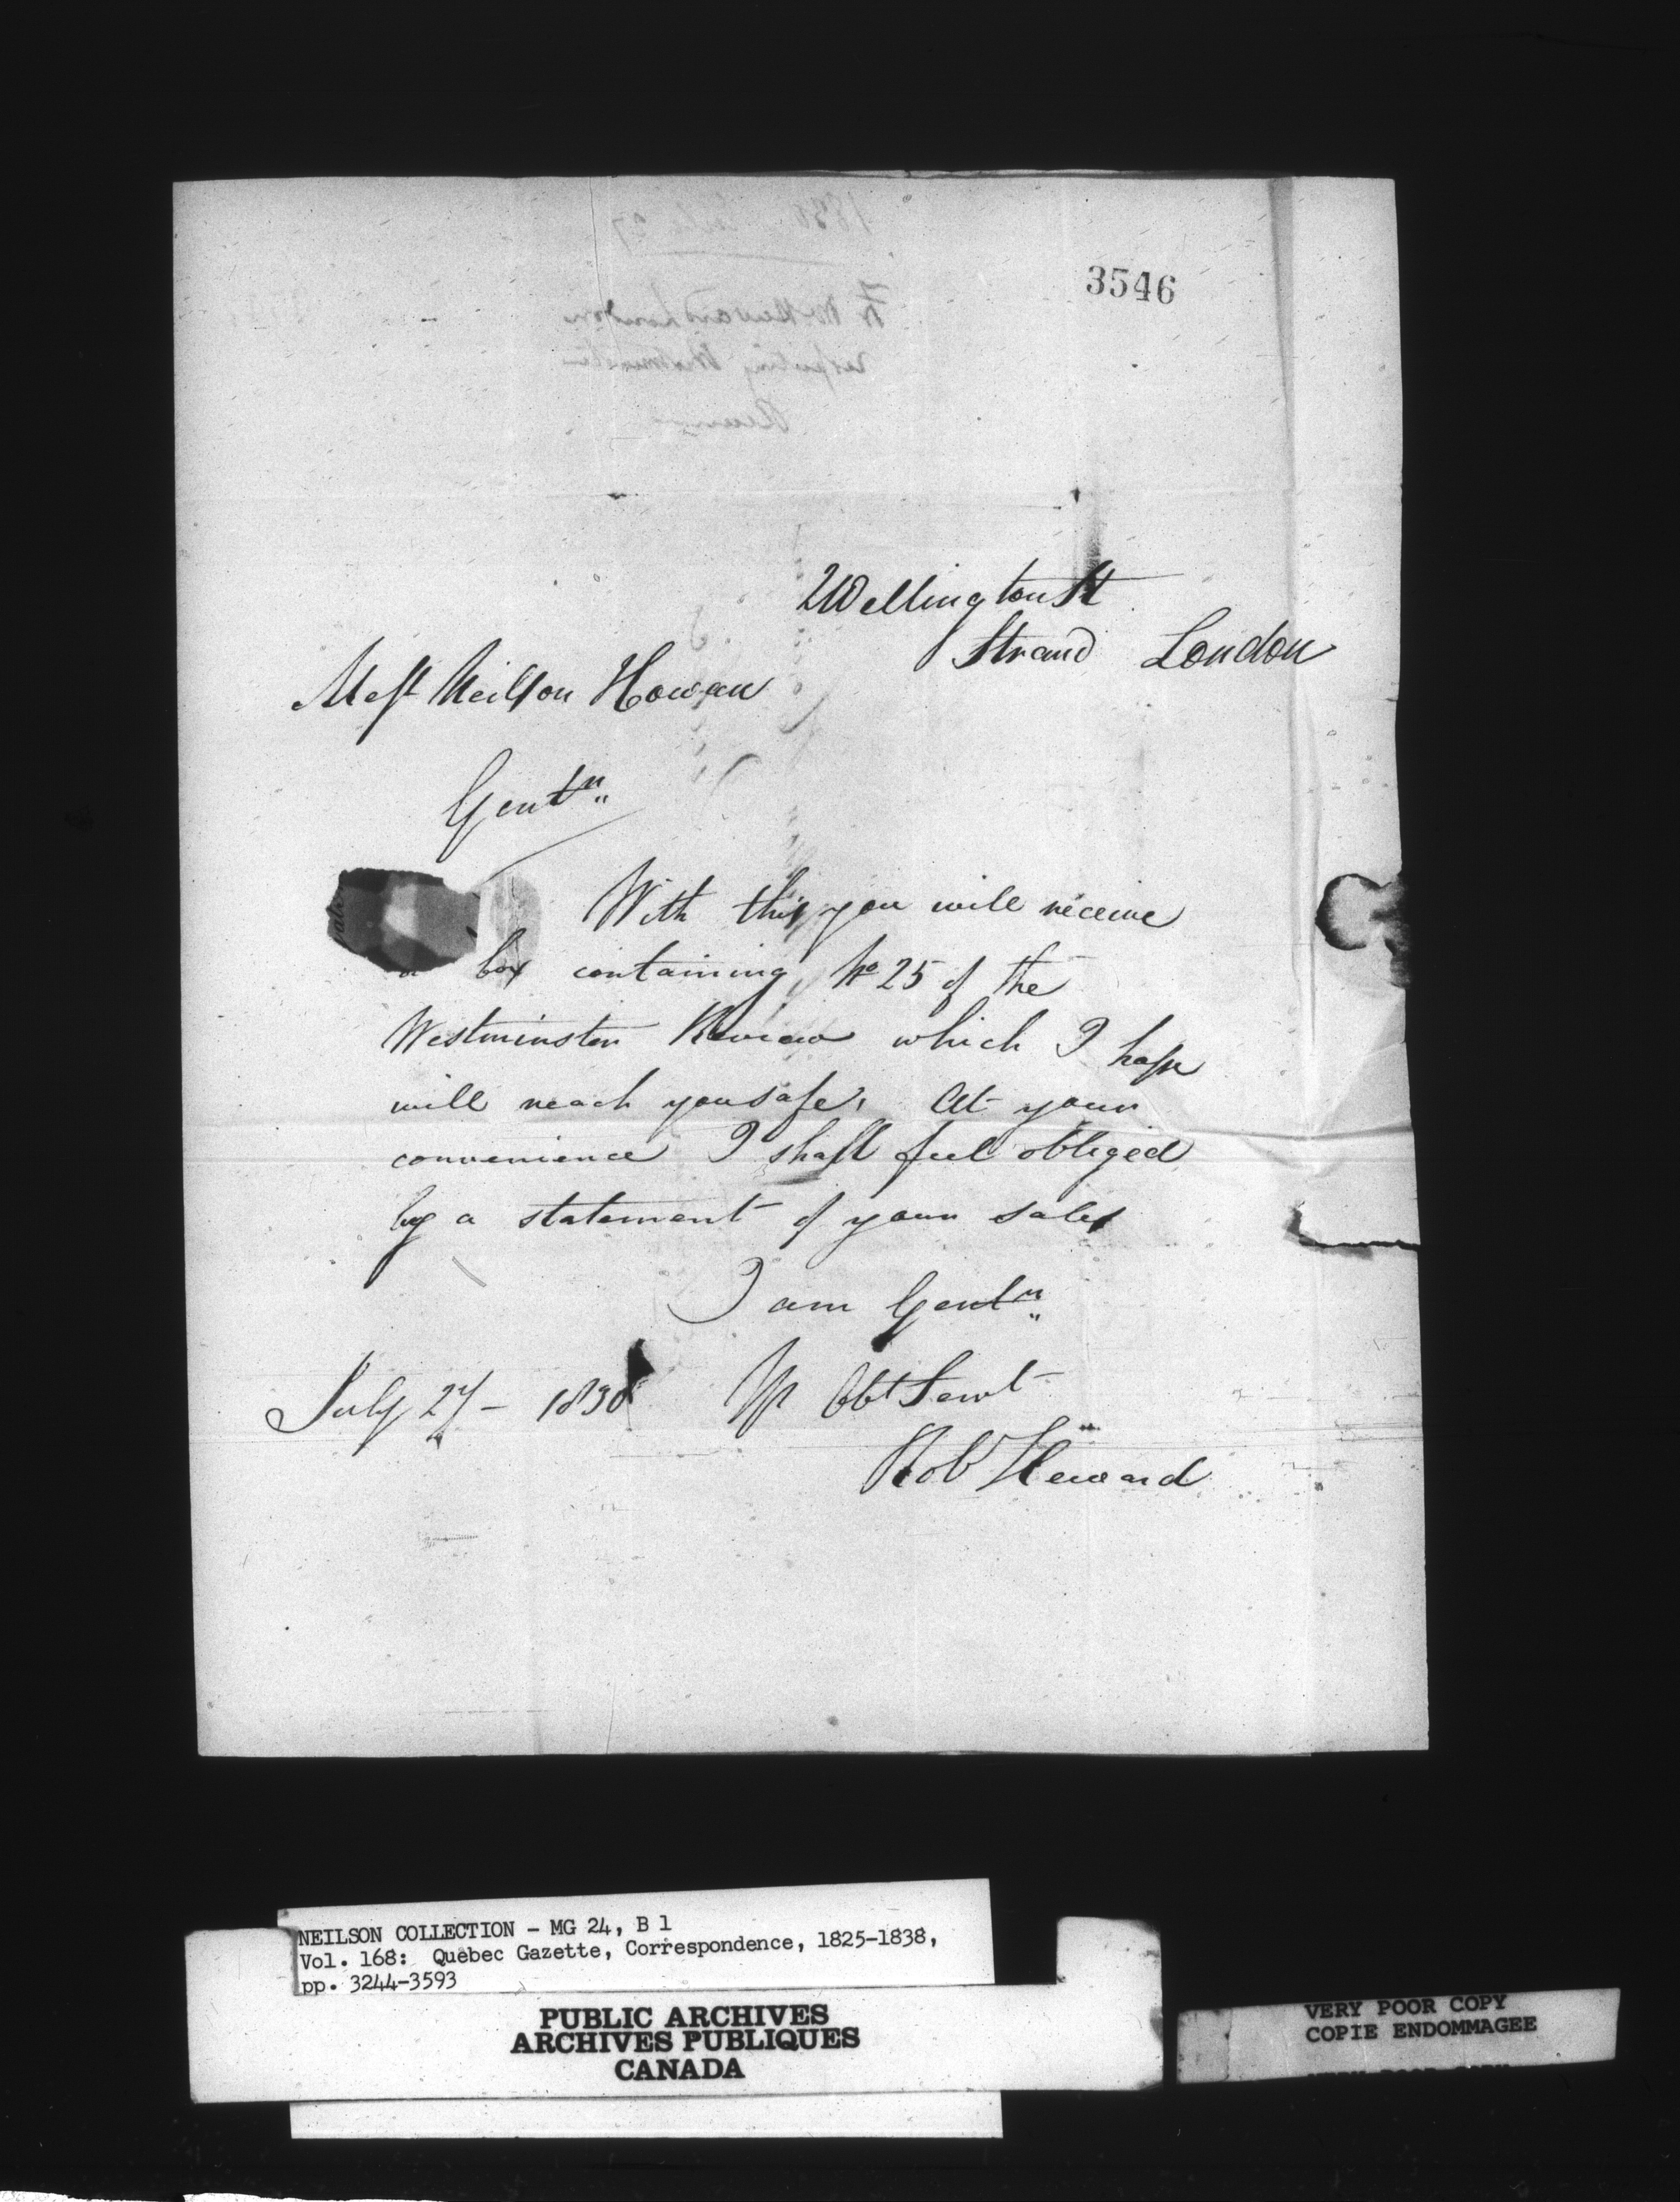 3546
2 Wellington St
Strand London
Messrs Neilson Howan
Gentn
With this you will receive
a box containing No 25 of the
Westminster Review which I hope
will reach you safe. At your
convenience I shall feel obliged
by a statement of your sales
I am Gentn
July 27 - 1830 Yr Obt Servt
Rob Heward
NEILSON COLLECTION - MG 24, B 1
Vol. 168: Quebec Gazette, Correspondence, 1825-1838,
pp. 3244-3593
PUBLIC ARCHIVES
ARCHIVES PUBLIQUES
CANADA
VERY POOR COPY
COPIE ENDOMMAGEE